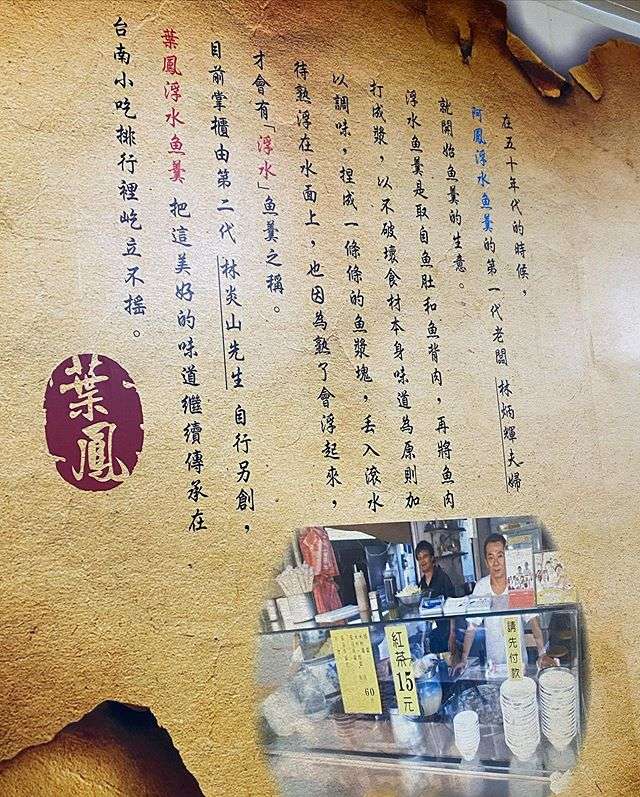 在五十年代的時候，
阿鳳浮水魚羹的第一代老闆 林炳輝夫婦
就開始魚羹的生意。
浮水魚羹是取自魚肚和魚背肉，再將魚肉
打成漿，以不破壞食材本身味道為原則加
以調味，捏成一條條的魚漿塊，丟入滾水
待熟浮在水面上，也因為熟了會浮起來，
才會有「浮水」魚羹之稱。
目前掌櫃由第二代 林炎山先生 自行另創，
葉鳳浮水魚羹 把這美好的味道繼續傳承在
台南小吃排行裡屹立不搖。
葉鳳
請先付款
紅茶15元
60